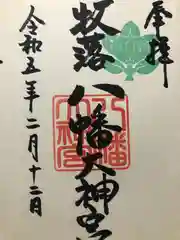 奉拝
牧落八幡大神宮
八幡大神宮
令和五年二月十二日